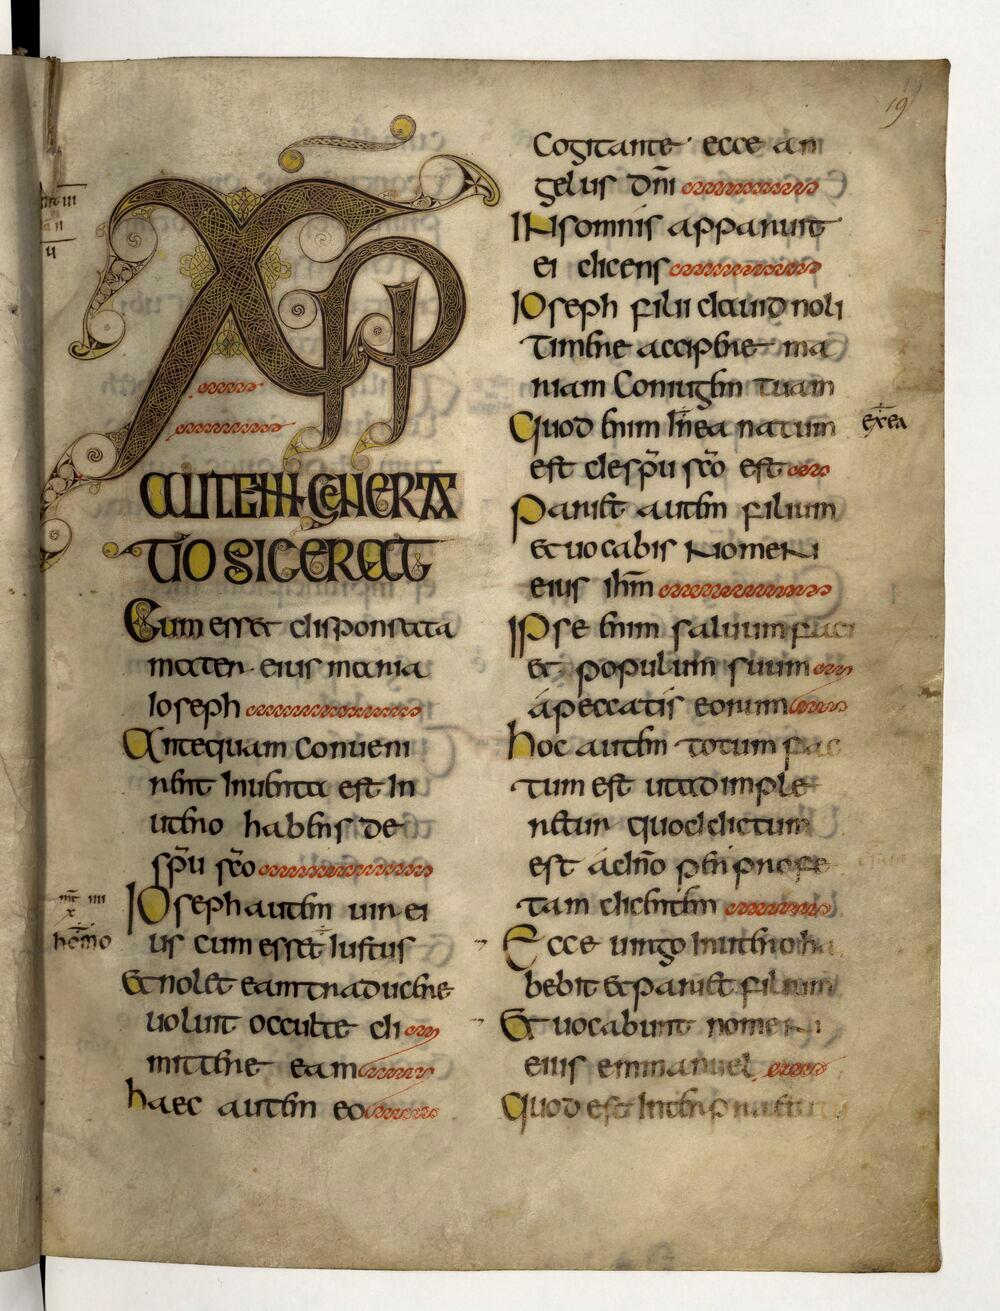 19
XPI
AUTEM GENERA
TIO SIC ERAT
Cum esset disponsata
mater eius maria
Ioseph
Antequam conueni
rent inuenta est in
utero habens de
spu sco
Ioseph autem uir ei
us cum esset iustus
Et nolet eam traducere
uoluit occulte di
mittere eam
haec autem eo
Cogitante ecce an
gelus dni
In somnis apparuit
ei dicens
Ioseph fili dauid noli
timere accipere ma
riam coniugem tuam
Quod enim in ea natum
ex ea
est de spu sco est
Pariet autem filium
et uocabis nomen
eius ihm
Ipse enim saluum faci
et populum suum
a peccatis eorum
hoc autem totum fac
tum est ut adimple
retur quod dictum
est a dno per profe
tam dicentem
Ecce uirgo in utero ha
bebit et pariet filium
Et uocabunt nomen
eius emmanuel
Quod est interpraetatu